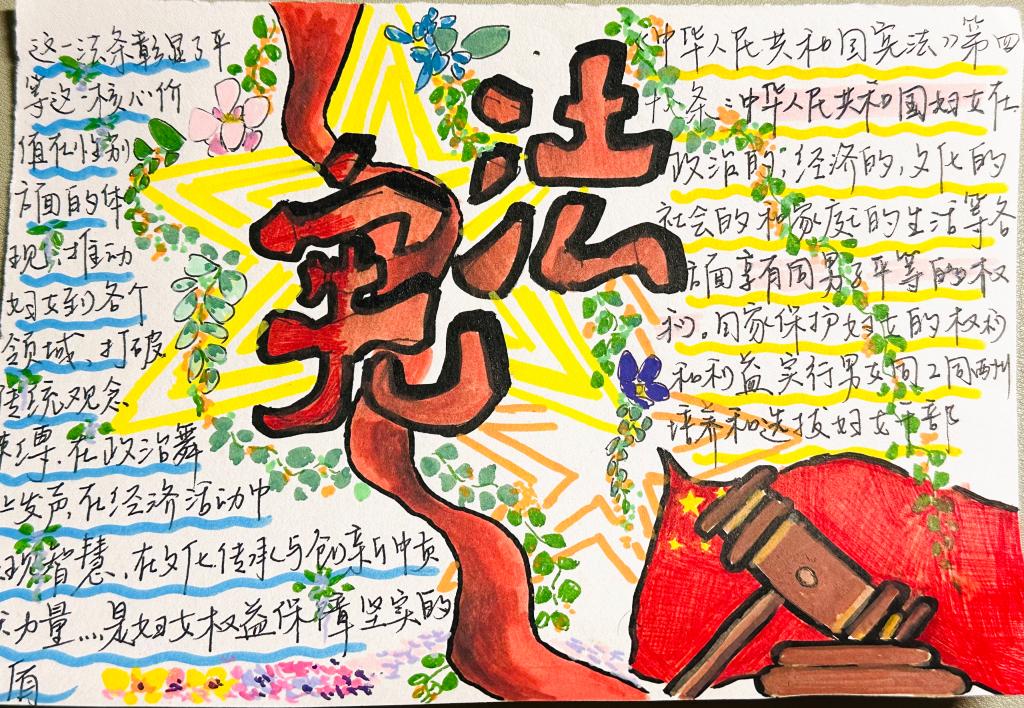 宪法
这一法条彰显了平
等这一核心价
值在性别
方面的体
现,推动
妇女到各个
领域,打破
传统观念
束缚,在政治舞
上发声,在经济活动中
现智慧,在文化传承与创新中贡
力量....是妇女权益保障坚实的
盾
《中华人民共和国宪法》第四
十八条:中华人民共和国妇女在
政治的,经济的,文化的
社会的和家庭的生活等各
方面享有同男子平等的权
利。国家保护妇女的权利
和利益实行男女同工同酬
培养和选拔妇女干部